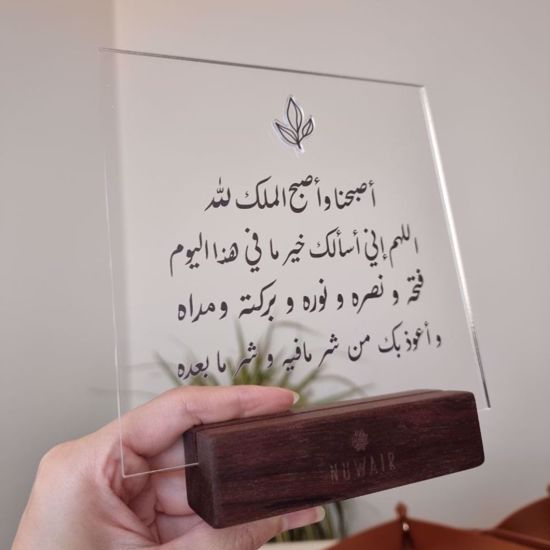 أصبحنا وأصبح الملك لله
اللهم إني أسألك خير ما في هذا اليوم
فتحه و نصره و نوره و بركته ومداه
و أعوذ بك من شر مافيه و شر ما بعده
NUWAIR